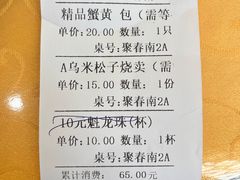 精品蟹黄 包（需等
单价:20.00 数量: 1只
桌号:聚春南2A
A乌米松子烧卖（需
单价:15.00 数量: 1份
桌号:聚春南2A
10元魁龙珠(杯)
单价:10.00 数量: 1杯
桌号:聚春南2A
累计消费: 65.00元